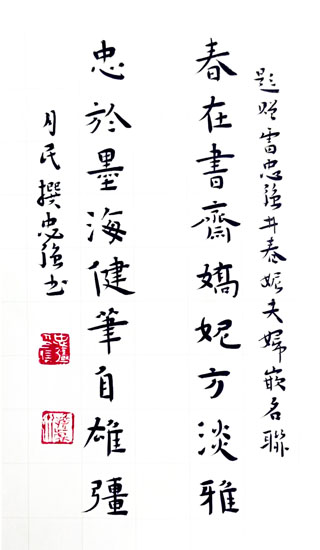 题赠雷忠强井春妮夫婦嵌名聯
春在書齋嬌妮方淡雅
忠於墨海健筆自雄彊
月民撰忠强书